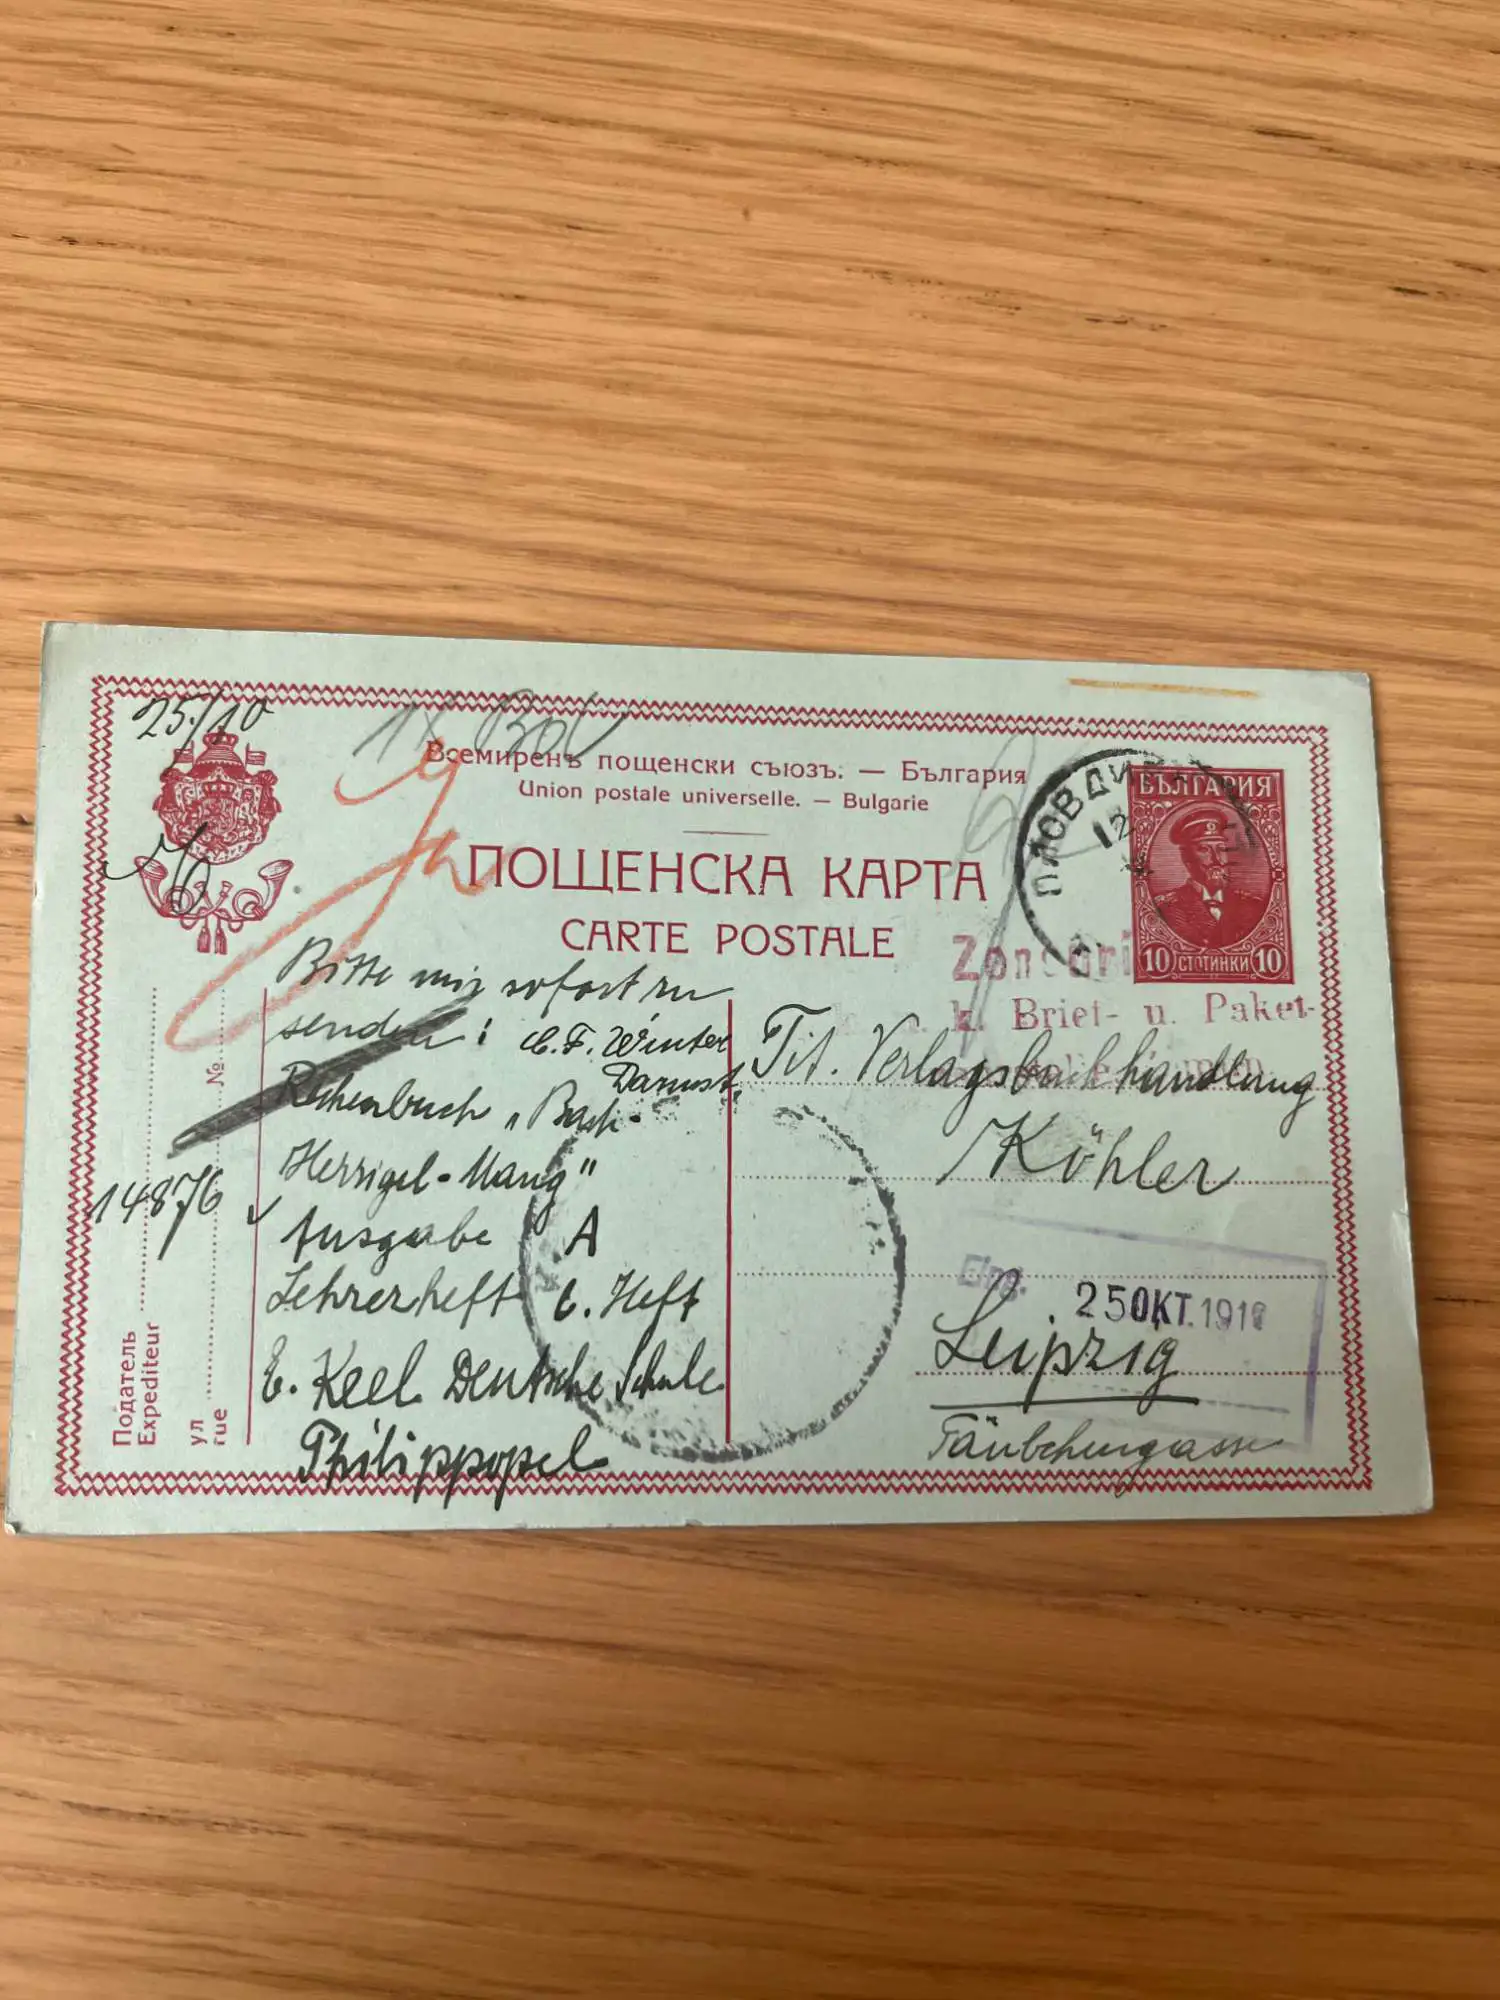 25./10
Всемиренъ пощенски съюзъ. — България
Union postale universelle. — Bulgarie
ПОЩЕНСКА КАРТА
CARTE POSTALE
ПЛОВДИВ
БЪЛГАРИЯ
10 СТОТИНКИ 10
k. Brief- u. Paket-
Bitte mir sofort zu
senden: C. F. Winter
Darmst.
Rechenbuch „Bach-
Herrigel-Mang"
Ausgabe A
Lehrerheft 6. Heft
E. Keel Deutsche Schule
Philippopel
14876
№
Податель
Expediteur
ул
rue
Tit. Verlagsbuchhandlung
Köhler
Eing. 25 OKT. 191
Leipzig
Täubchengasse